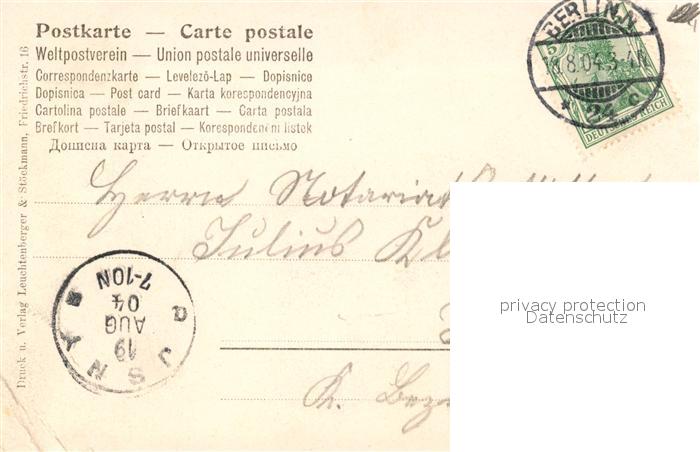 Postkarte — Carte postale
Weltpostverein — Union postale universelle
Correspondenzkarte — Levelező-Lap — Dopisnice
Dopisnica — Post card — Karta korespondencyjna
Cartolina postale — Briefkaart — Carta postala
Brefkort — Tarjeta postal — Korespondenčni listek
Дописна карта — Открытое письмо
Druck u. Verlag Leuchtenberger & Stöckmann, Friedrichstr. 16
BERLIN.N.
8.04.3-4N
* 24 c
5
DEUTSCHES REICH
Herrn Notariat
Julius Kl
7-10N
04
AUG
19
K. Bez
privacy protection
Datenschutz